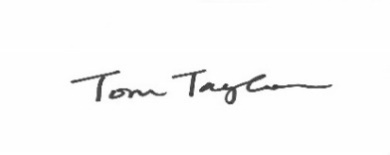 Tom Taylor